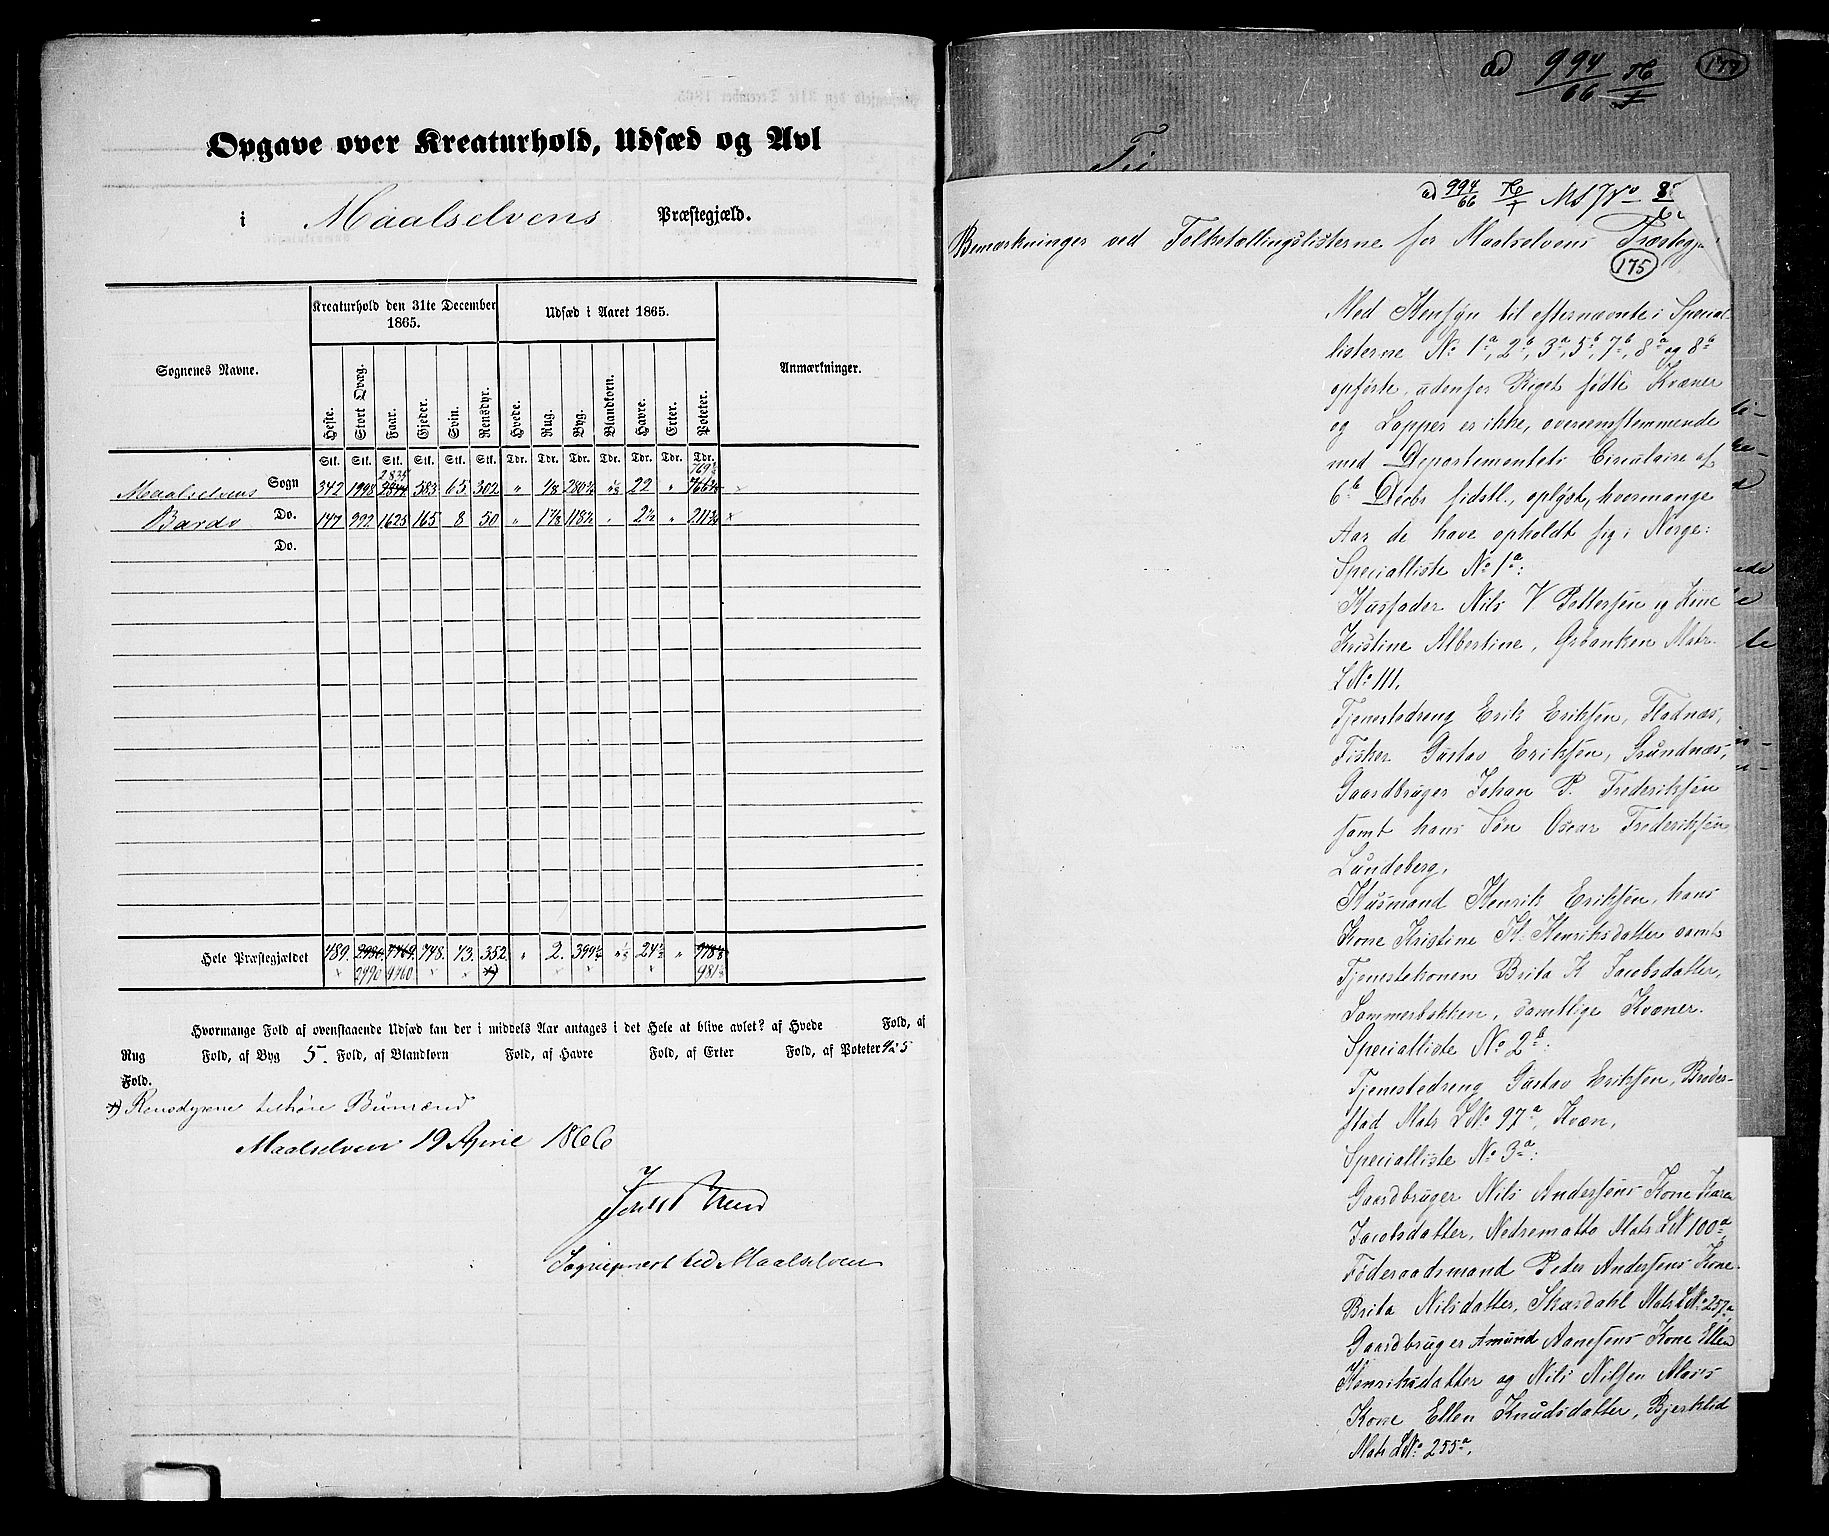 Opgave over Kreaturhold, Udsæd og Avl
i Maalselvens Præstegjæld.
Sognenes Navne.
Kreaturhold den 31te December 1865.
Udsæd i Aaret 1865.
Anmærkninger.
Heste. Stort Qvæg. Faar. Gjeder. Svin. Rensdyr. Hvede. Rug. Byg. Blandkorn. Havre. Erter. Poteter.
Stk. Stk. Stk. Stk. Stk. Stk. Tdr. Tdr. Tdr. Tdr. Tdr. Tdr. Tdr.
2835 769½
Maalselvens Sogn 342 1998 2844 583 65 302 " 1/8 280¾ 22 "
Bardo Do. 147 992 1625 165 8 50 " 1⅞ 118½ " 2½ "
Do.
Hele Præstegjældet 489. 2980. 4469. 748. 73. 352. " 2. 399¼ 24½ "
2990 4460 *)
Hvormange Fold af ovenstaaende Udsæd kan der i middels Aar antages i det Hele at blive avlet? af Hvede Fold, af
Rug Fold, af Byg 5. Fold, af Blandkorn Fold, af Havre Fold, af Erter Fold, af Poteter
Fold.
*) Rensdyrene tilhöre Bümænd
Maalselven 19 April 1866
Sogneprest ved Maalselven
ad 994/66
Til
ad 994/66
175
Bemærkninger ved Folketællingslisterne for Maalselvens Præstegj
Med Hensyn til efternævnte i Special-
listerne No 1a, 2b, 3a, 5b, 7b, 8a og 8b
opførte, udenfor Riget fødte Kvæner
og Lapper er ikke, overensstemmende
med Departementets Circulaire af
6te Decbr sidstl., oplyst, hvormange
Aar de have opholdt sig i Norge:
Specialliste No 1a:
Husfader Nils V Pettersen og Kone
Kristine Albertine, Grbanken Matr.
LNo 111.
Tjenestedreng Erik Eriksen, Fladnæs,
Fisker Gustav Eriksen, Grundnæs,
Gaardbruger Johan P. Frederiksen
samt hans Søn Oscar Frederiksen
Lundeberg,
Husmand Henrik Eriksen, hans
Kone Kristine H. Henriksdatter samt
Tjenestekonen Brita K Jacobsdatter,
Lammerbakken, samtlige Kvæner.
Specialliste No 2b:
Tjenestedreng Gustav Eriksen, Broder-
stad Matr LNo 97a, Kvæn,
Specialliste No 3a:
Gaardbruger Nils Andersens Kone Karen
Jacobsdatter, Nedrematto Matr LN 100a
Föderaadsmand Peder Andersens Kone
Brita Nilsdatter, Skardahl Matr LNo 257a
Gaardbruger Amund Aanesens Kone Ellen
Henriksdatter og Nils Nilsen Moe's
Kone Ellen Knudsdatter, Bjerklid
Matr LNo 255a,